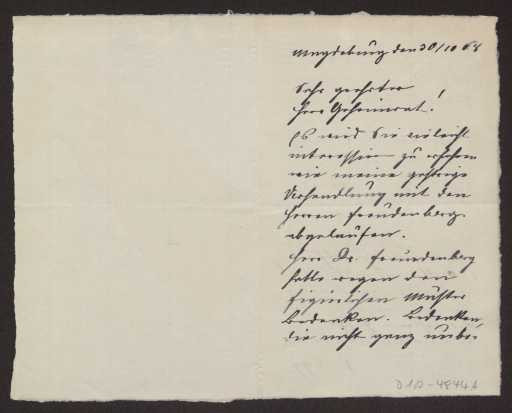 Magdeburg den 30/10 68
Sehr geehrter
Herr Geheimrat!
Es wird Sie vielleicht
interessieren zu erfahren
wie meine gestrige
Verhandlung mit den
Herren Freudenberg
abgelaufen.
Herr Dr. Freudenberg
hatte wegen den
Muster
Bedenken. Bedenken,
die nicht ganz unbe-